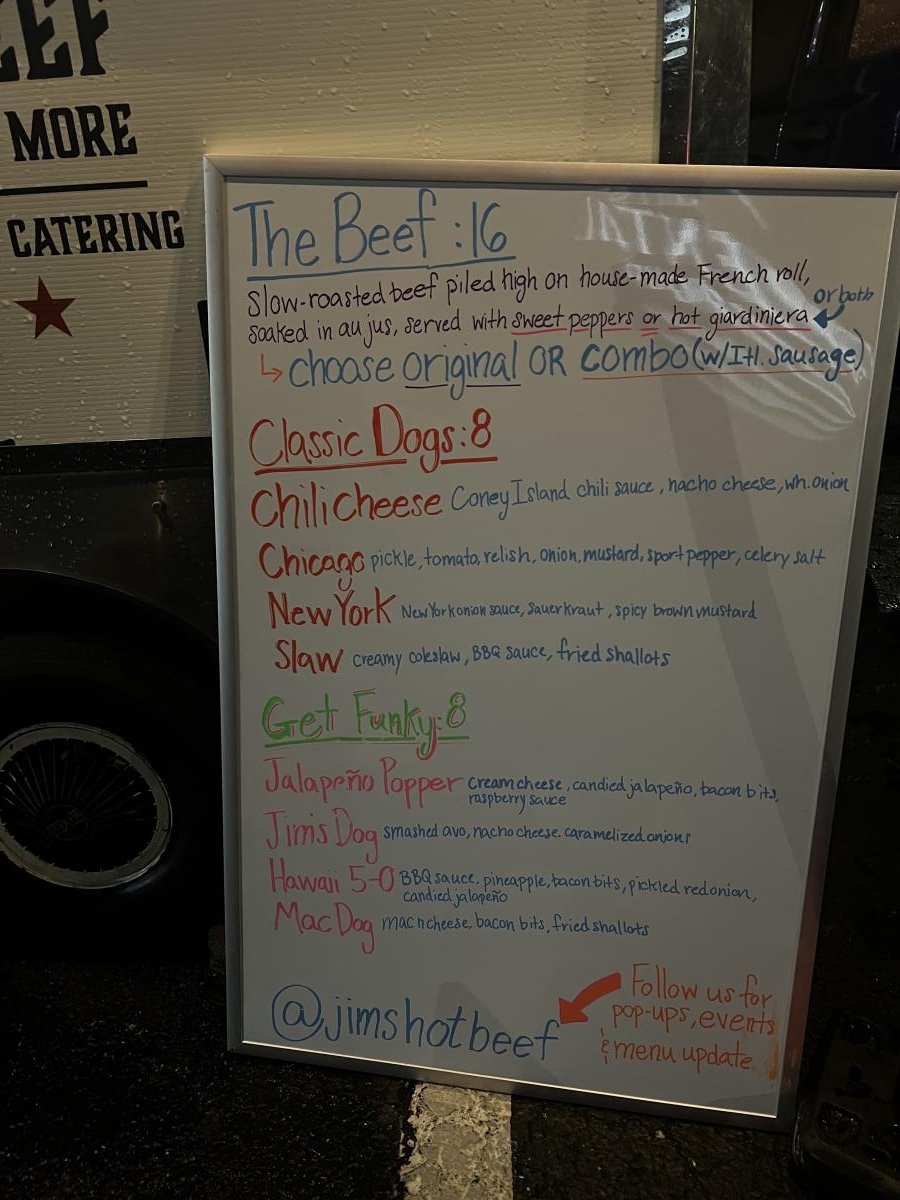 EEF
MORE
CATERING
The Beef :16
Slow-roasted beef piled high on house-made French roll,
or both
soaked in au jus, served with sweet peppers or hot giardiniera
choose original OR combo (w/Itl. sausage)
Classic Dogs:8
Chili cheese Coney Island chili sauce, nacho cheese, wh. onion
Chicago pickle, tomato, relish, onion, mustard, sport pepper, celery salt
New York New York onion sauce, sauerkraut, spicy brown mustard
Slaw creamy coleslaw, BBQ sauce, fried shallots
Get Funky:8
Jalapeño Popper cream cheese, candied jalapeño, bacon bits,
raspberry sauce
Jim's Dog smashed avo, nacho cheese. caramelized onions
Hawaii 5-0 BBQ sauce, pineapple, bacon bits, pickled red onion,
candied jalapeño
Mac Dog mac n cheese, bacon bits, fried shallots
@jimshotbeef
Follow us for
pop-ups, events
& menu update